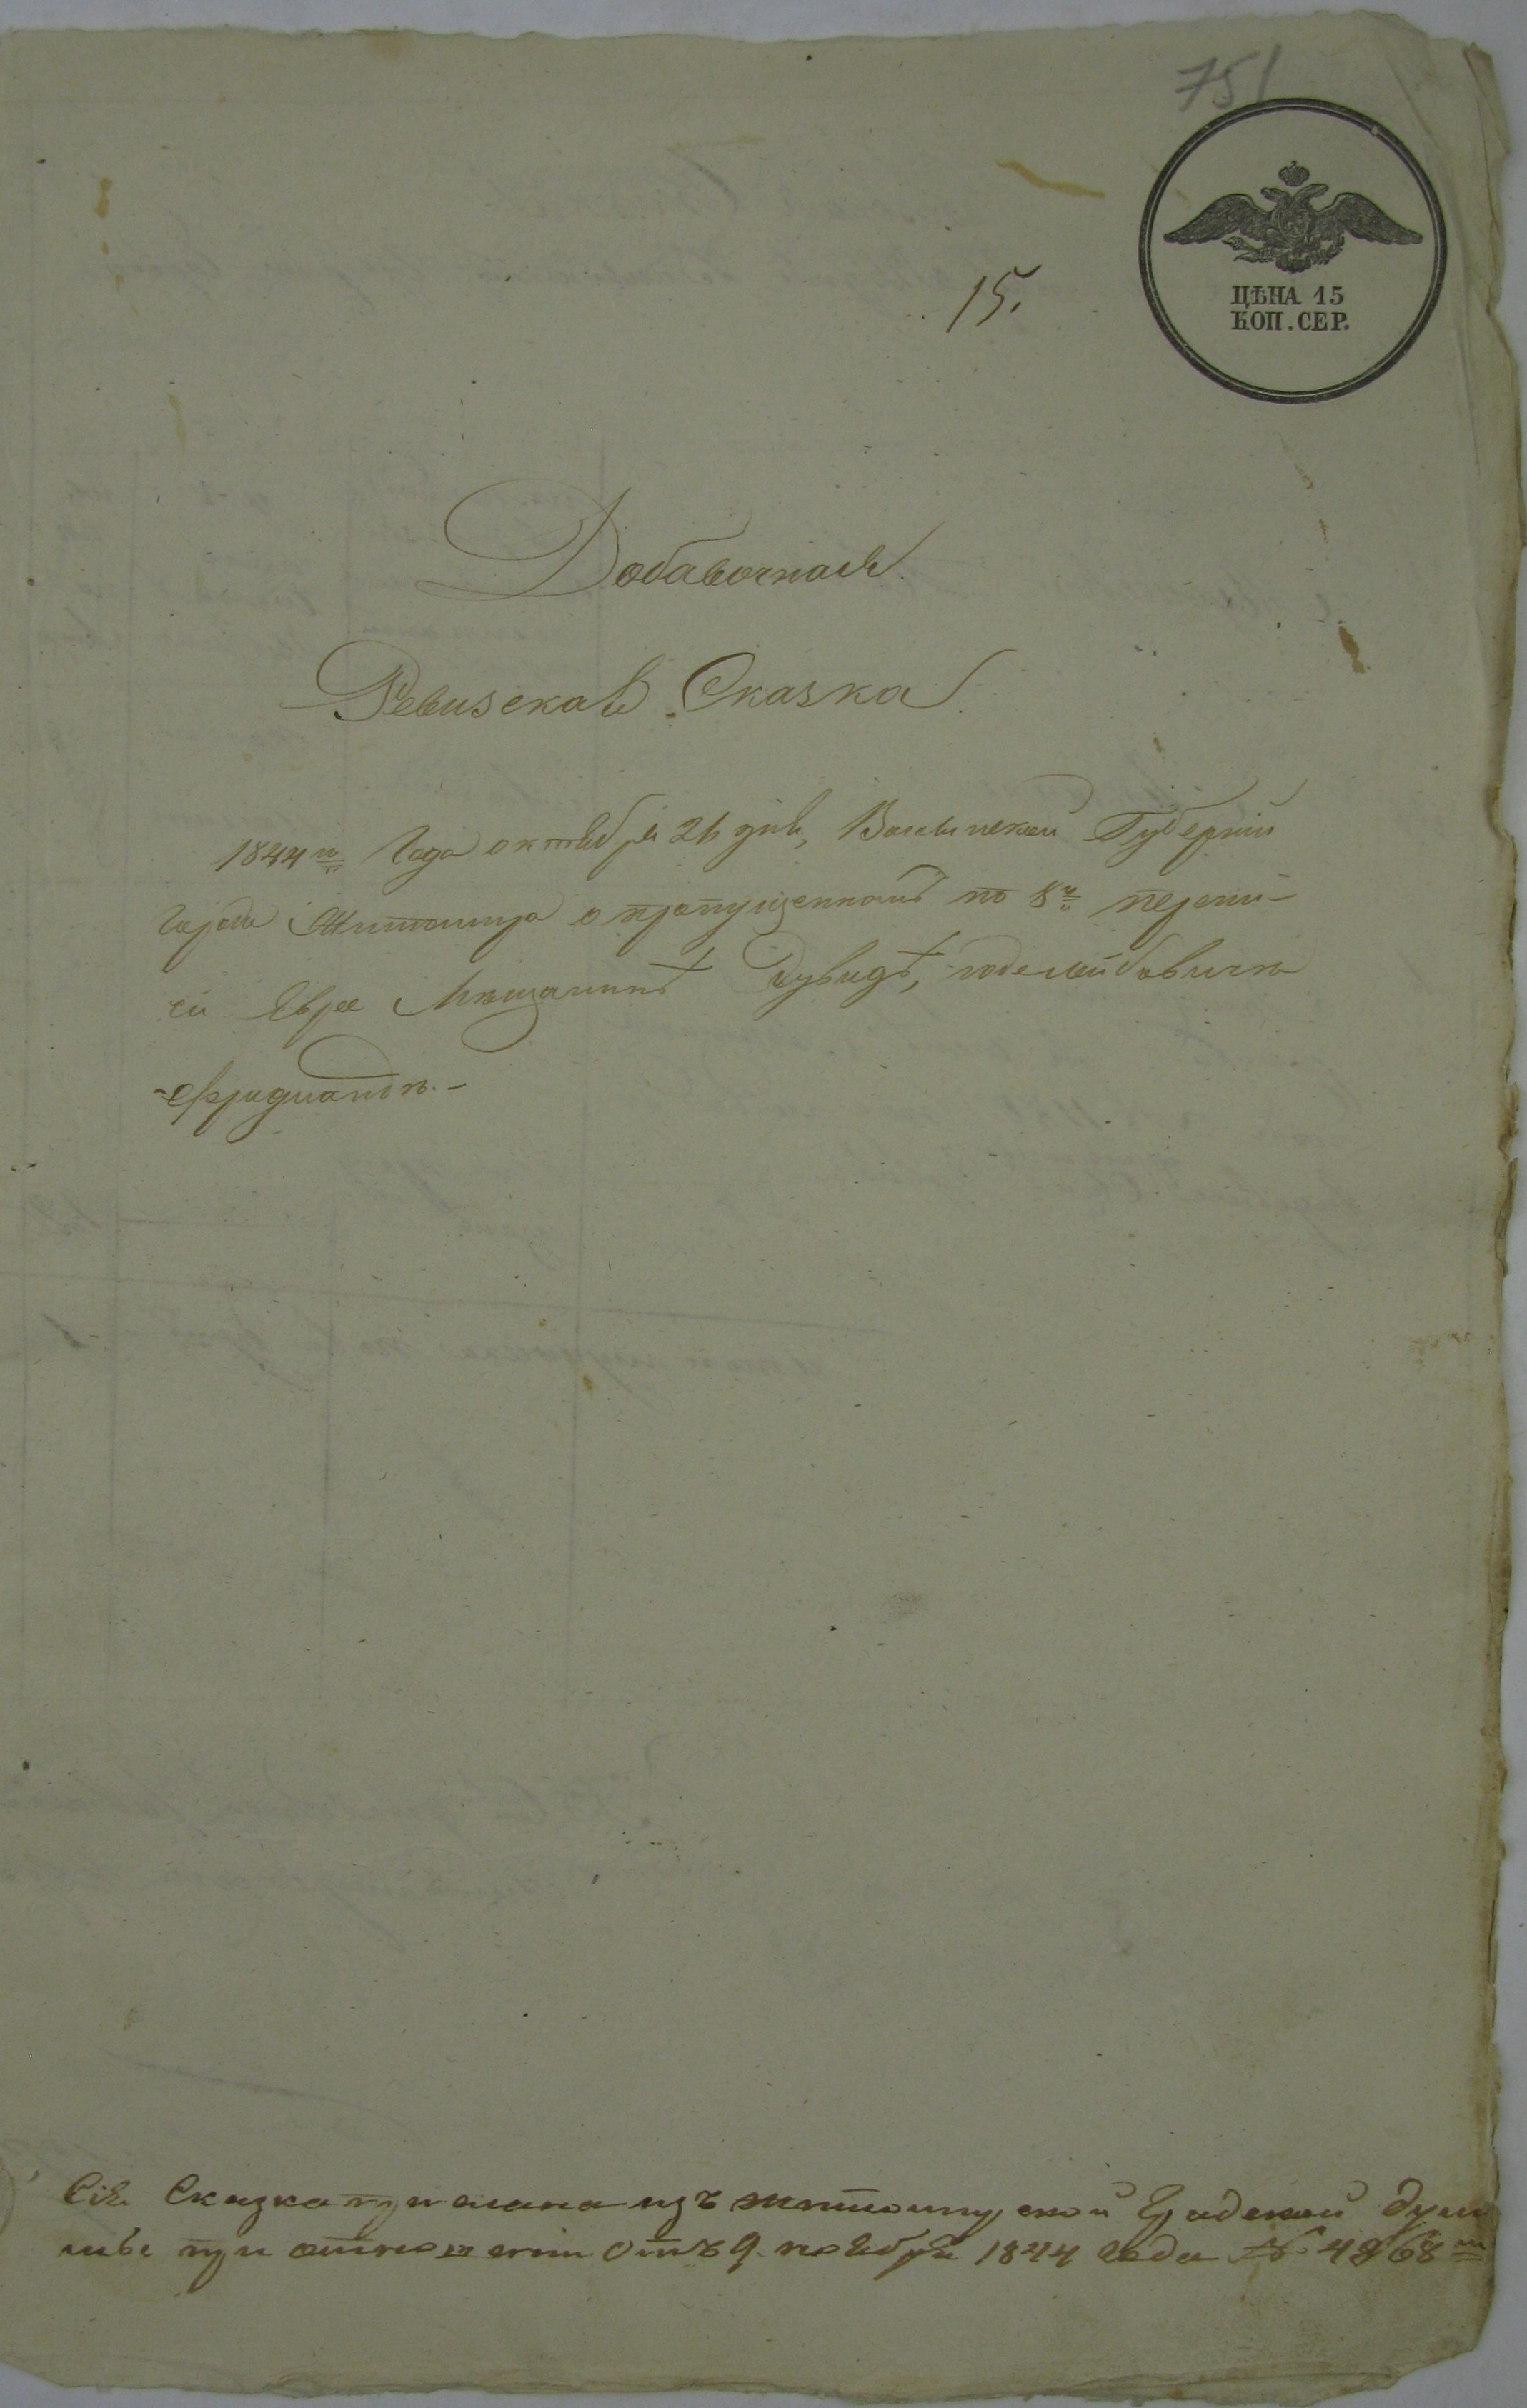 751
ЦѢНА 15
КОП. СЕР.
15.
Добавочная
Ревизская Сказка
1844го Года октября 26 дня, Волынской Губернии
города Житомира о пропущенномъ по 8й перепи-
си Еврее Мещанинѣ Дувидѣ,
Фридманѣ.-
Сія Сказка прислана изъ житомирской Градской Дум
мы при отношеніи отъ 9 ноября 1844 года № 4968мъ